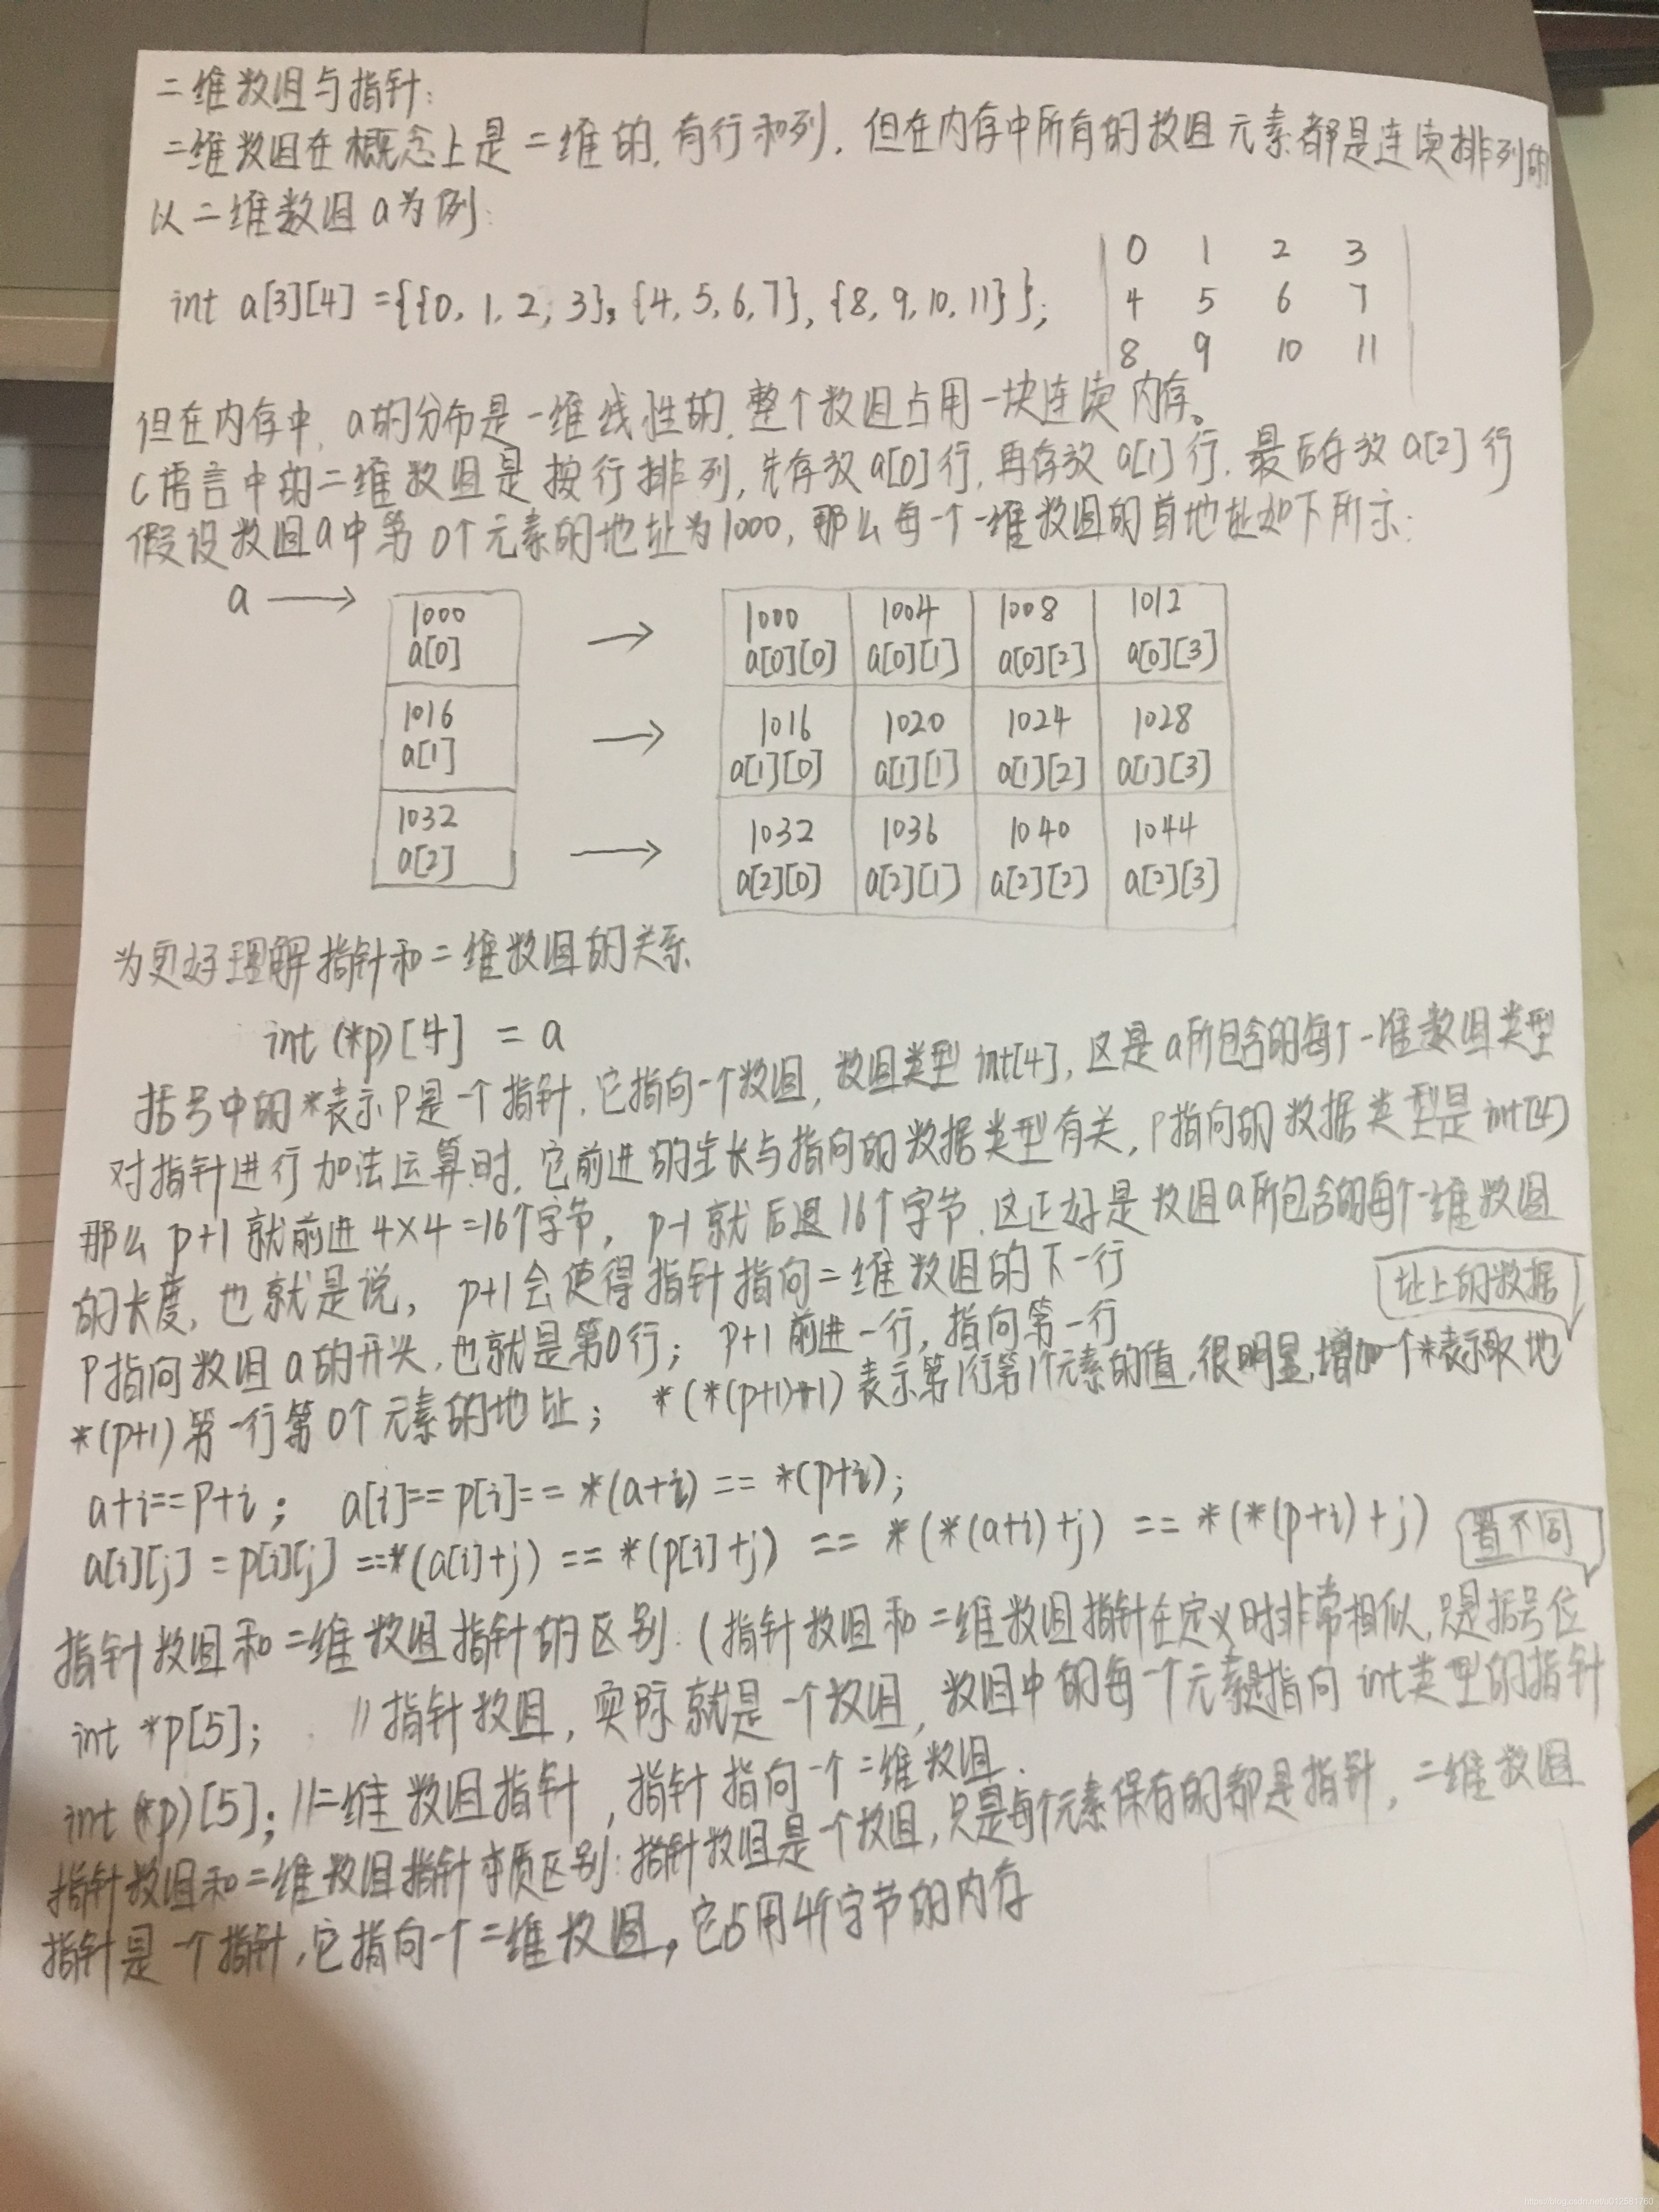 二维数组与指针:
二维数组在概念上是二维的,有行和列,但在内存中所有的数组元素都是连续排列的
以二维数组a为例:
int a[3][4] ={{0, 1, 2, 3}, {4, 5, 6, 7}, {8, 9, 10, 11}};
0 1 2 3
4 5 6 7
8 9 10 11
但在内存中, a的分布是一维线性的,整个数组占用一块连续内存。
C语言中的二维数组是按行排列,先存放a[0]行,再存放a[1]行,最后存放a[2]行
假设数组a中第0个元素的地址为1000,那么每一个一维数组的首地址如下所示:
a → 1000 → 1000 1004 1008 1012
a[0] a[0][0] a[0][1] a[0][2] a[0][3]
1016 → 1016 1020 1024 1028
a[1] a[1][0] a[1][1] a[1][2] a[1][3]
1032 → 1032 1036 1040 1044
a[2] a[2][0] a[2][1] a[2][2] a[2][3]
为更好理解指针和二维数组的关系
int (*p)[4] = a
括号中的*表示P是一个指针,它指向一个数组,数组类型int[4],这是a所包含的每个一维数组类型
对指针进行加法运算时,它前进的步长与指向的数据类型有关, P指向的数据类型是int[4]
那么 p+1就前进4×4=16个字节, p-1就后退16个字节,这正好是数组a所包含的每个一维数组
的长度,也就是说, p+1会使得指针指向二维数组的下一行
P指向数组a的开头,也就是第0行; p+1前进一行,指向第一行
*(p+1)第一行第0个元素的地址; *(*(p+1)+1)表示第1行第1个元素的值,很明显,增加一个*表示取地
址上的数据
a+i==P+i; a[i]==p[i]==*(a+i) == *(p+i);
a[i][j] = p[i][j] ==*(a[i]+j) == *(p[i]+j) == *(*(a+i)+j) == *(*(p+i)+j)
指针数组和二维数组指针的区别:(指针数组和二维数组指针在定义时非常相似,只是括号位
置不同
int *p[5]; //指针数组,实际就是一个数组,数组中的每一个元素是指向int类型的指针
int (*p)[5]; //二维数组指针,指针指向一个二维数组.
指针数组和二维数组指针本质区别:指针数组是一个数组,只是每个元素保存的都是指针,二维数组
指针是一个指针,它指向一个二维数组,它占用4个字节的内存
https://blog.csdn.net/u012581760